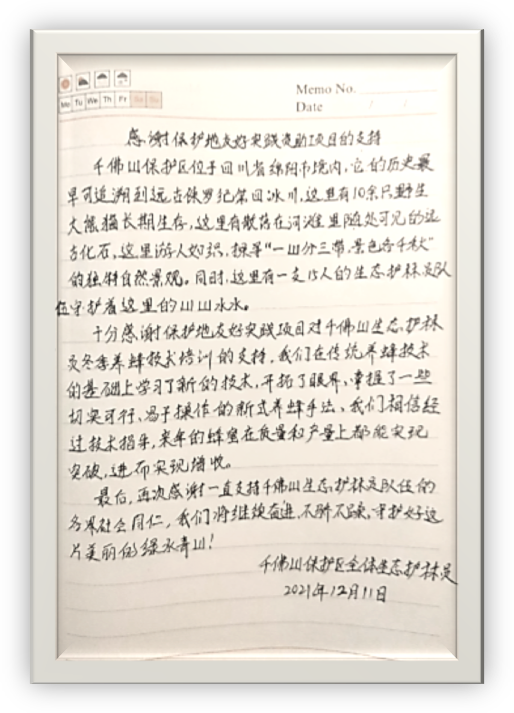 Memo No.
Mo Tu We Th Fr Sa Su
Date / /
感谢保护地友好实践资助项目的支持
千佛山保护区位于四川省绵阳市境内，它的历史最
早可追溯到远古侏罗纪第四冰川，这里有10余只野生
大熊猫长期生存，这里有散落在河滩里随处可见的远
古化石，这里游人如织，探寻“一山分三带，景色各千秋”
的独特自然景观。同时，这里有一支15人的生态护林员队
伍守护着这里的山山水水。
十分感谢保护地友好实践项目对千佛山生态护林
员冬季养蜂技术培训的支持，我们在传统养蜂技术
的基础上学习了新的技术，开拓了眼界、掌握了一些
切实可行、易于操作的新式养蜂手法、我们相信经
过技术指导，来年的蜂蜜在质量和产量上都能实现
突破，进而实现增收。
最后，再次感谢一直支持千佛山生态护林员队伍的
各界社会同仁，我们将继续奋进，不骄不躁，守护好这
片美丽的绿水青山！
千佛山保护区全体生态护林员
2021年12月11日